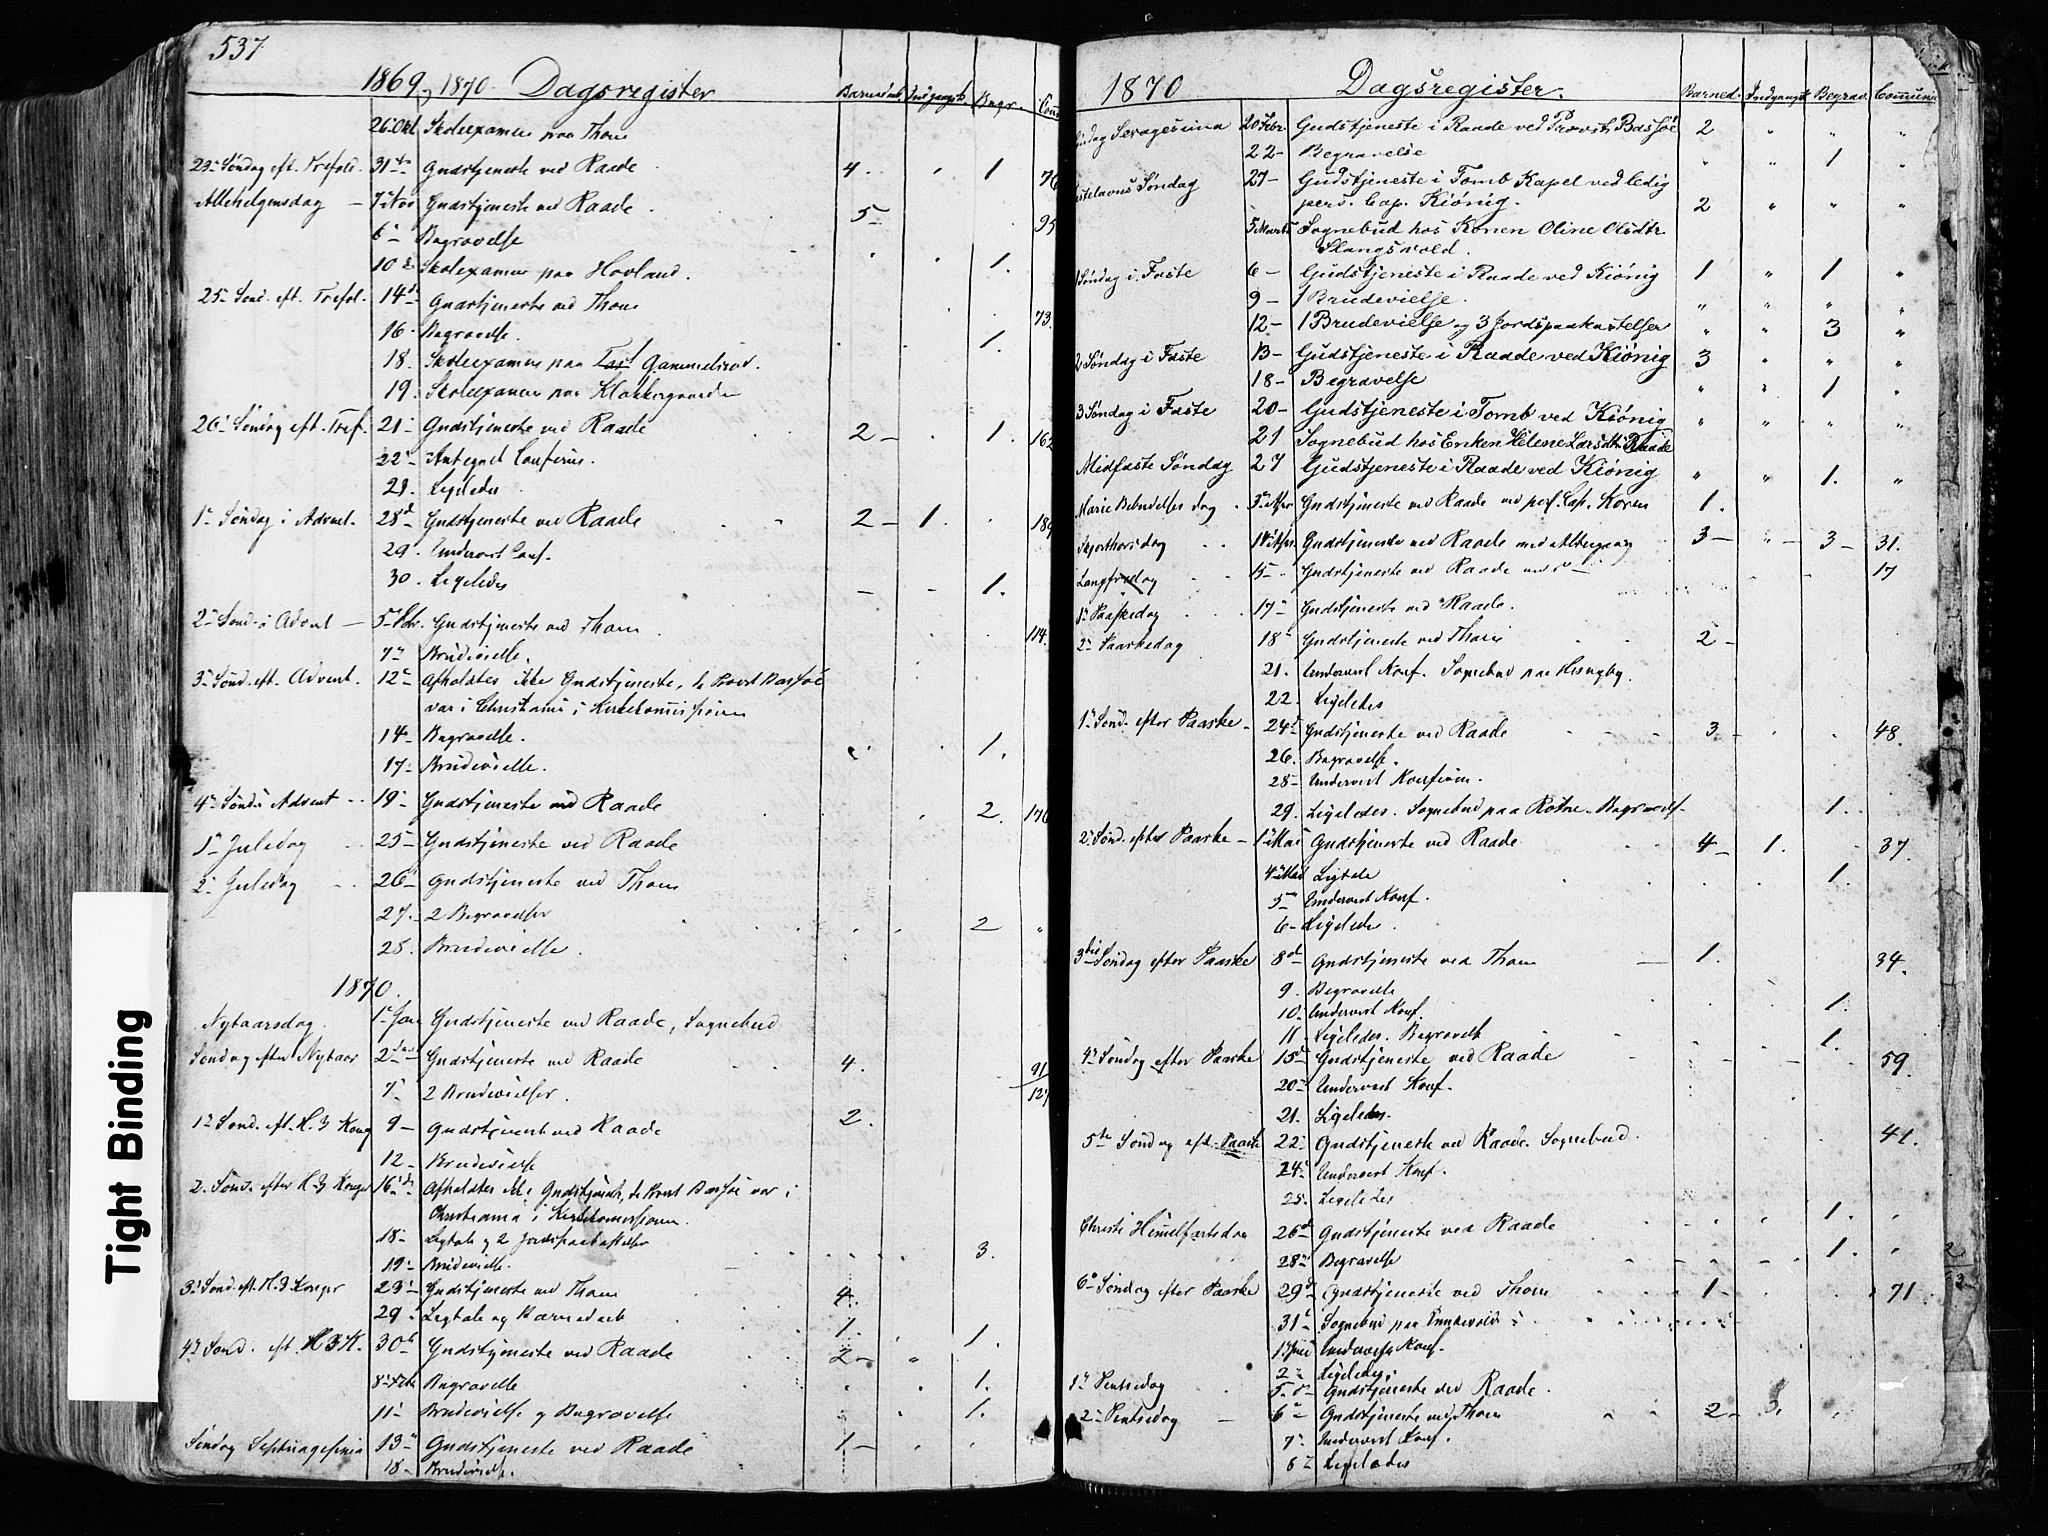 537
1869, 1870. Dagsregister Barnedaab Indgangsk. Begr. Com
26 Okt Skoleexamen paa Thom
23de Søndag eft. Trefold. 31te Gudstjeneste ved Raade 4. " 1 76
Allehelgensdag 7de Nov Gudstjeneste ved Raade 5 95
6 Begravelse
10 Skoleexamen paa Hovland. 1.
25de Sønd. eft. Trefol. 14d Gudstjeneste ved Thom 73.
16. Begravelse. 1.
18. Skoleexamen paa Gammelsrød.
19. Skoleexamen paa Klokkergaarden
26de Søndag eft. Tref. 21 Gudstjeneste ved Raade 2 1. 162
22 Antegnet Confirm.
29. Ligeledes
1ste Søndag i Advent. 28d Gudstjeneste ved Raade 2 1. 189
29. Underviist Conf.
30. Ligeledes 1.
2den Sønd. i Advent 5te Dbr. Gudstjeneste ved Thom 114.
7de Brudevielse.
3de Sønd. eft. Advent. 12te Afholdtes ikke Gudstjeneste, da Provst Bassøe
var i Christiania i Kirkekomissionen
14 Begravelse. 1.
17 Brudevielse.
4de Sønd i Advent 19 Gudstjeneste ved Raade 2. 170
1ste Juledag 25 Gudstjeneste ved Raade
2den Juledag 26 Gudstjeneste ved Thom
27. 2 Begravelser 2 "
28. Brudevielse
1870.
Nytaarsdag. 1ste Jan Gudstjeneste ved Raade, Sognebud
Søndag efter Nytaar 2den Gudstjeneste ved Raade 4. 91
7 2 Brudevielser. 127
1ste Sønd. eft. H. 3 Kong 9 Gudstjenest ved Raade 2.
12 Brudevielse
2. Sønd. efter H. 3 Konger 16de Afholdtes ikke Gudstjeneste, da Provst Bassøe var i
Christiania i Kirkekomissionen.
18 Ligtale og 2 Jordspaakastelser 3.
19 Brudevielse.
3de Sønd. eft. H. 3 Konger 23 Gudstjeneste ved Thom 4.
29 Ligtale og Barnedaab 1. 1.
4de Sønd. eft. H 3 K. 30 Gudstjeneste ved Raade 2 "
8de Febr Begravelse 1.
11 Brudevielse og Begravelse 1.
Søndag Septuagesima 13 Gudstjeneste ved Raade 1
18 Brudevielse.
1870 Dagsregister. Barned. Indgangsk Begrav. Communi
Søndag Sexagesima 20 Febr Gudstjeneste i Raade ved Provst Bassøe 2 " " "
22 Begravelse " " 1 "
Fastelavns Søndag 27 Gudstjeneste i Tomb Kapel ved ledig
pers. Cap. Kiønig. 2 " " "
5 Marts Sognebud hos Konen Oline Olsdtr
Slangsvold.
1 Søndag i Faste 6 Gudstjeneste i Raade ved Kiønig 1 " 1 "
9 1 Brudevielse. " " " "
12 1 Brudevielse og 3 Jordspaakastelser " " 3 "
2 Søndag i Faste 13 Gudstjeneste i Raade ved Kiønig 3 " " "
18 Begravelse " " 1 "
3 Søndag i Faste 20 Gudstjeneste i Tomb ved Kiønig " " " "
21 Sognebud hos Enken Helene Larsdtr Raade
Midfaste Søndag 27 Gudstjeneste i Raade ved Kiønig " " 1. "
Marie Bebudelses dag 3de Apr Gudstjeneste ved Raade ved pers. Cap. Koren 1.
Skjærthorsdag 14 Apr. Gudstjeneste ved Raade med Altergang 3 " 3 31.
Langfredag 15 Gudstjeneste ved Raade 17
1ste Paaskedag 17 Gudstjeneste ved Raade.
2den Paaskedag 18 Gudstjeneste ved Thom 2
21. Underviist Konf. Sognebud paa
22. Ligeledes
1ste Sønd. efter Paaske 24 Gudstjeneste ved Raade 3 48.
26. Begravelse.
28 Underviist Konfirm.
29. Ligeledes. Sognebud paa Rotne. Begravels 1.
2. Sønd. efter Paaske 1ste Mai Gudstjeneste ved Raade 4 1. 37.
4de Mai Ligtale 1.
5 Underviist Konf.
6 Ligeledes
3die Søndag efter Paaske 8de Gudstjeneste ved Thom 1. 34.
9. Begravelse 1.
10. Underviist Konf.
11 Ligeledes. Begravelse 1.
4de Søndag efter Paaske 15d Gudstjeneste ved Raade 59.
20 Underviist Konf.
21. Ligeledes.
5te Søndag eft. Paaske 22 Gudstjeneste ved Raade. Sognebud. 41.
24 Underviist Konf.
25. Ligeledes
Christi Himmelfartsdag 26d Gudstjeneste ved Raade 1.
28 Begravelse 1.
6te Søndag efter Paaske 29d Gudstjeneste ved Thom 1 71.
31 Sognebud paa
1 Juni Underviist Konf.
2 Ligeledes.
1ste Pintsedag 5 Gudstjeneste ved Raade.
2den Pintsedag 6 Gudstjeneste ved Thom 2
7 Underviist Konf.
8 Ligeledes
Tight Binding